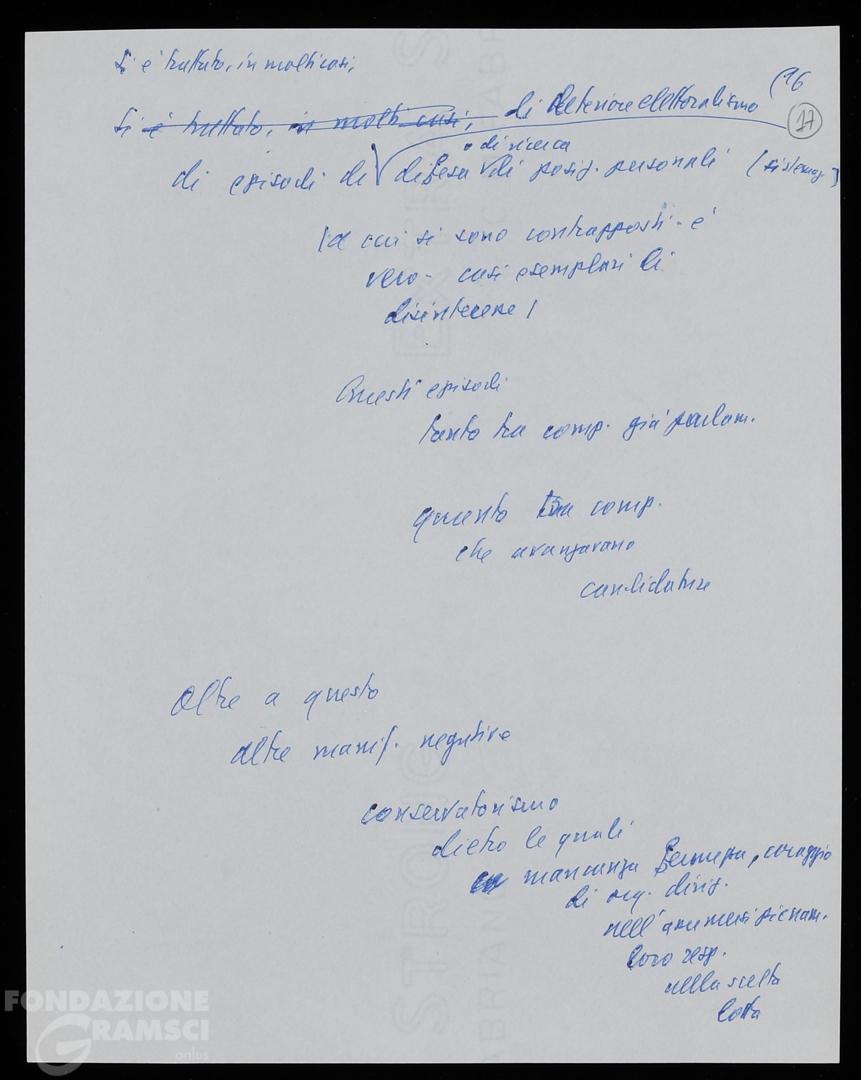 Si è trattato, in molti casi,
(16
17
Si è trattato, in molti casi, di deteriore elettoralismo
o di ricerca
di episodi di difesa di posiz. personali (sistemaz.)
(a cui si sono contrapposti - è
vero - casi esemplari di
disinteresse)
Questi episodi
tanto tra comp. già parlam.
quanto tra comp.
che avanzavano
candidature
Oltre a questo
altre manif. negative
conservatorismo
dietro le quali
mancanza fermezza, coraggio
di org. dirig.
nell'assumersi pienam.
loro resp.
nella scelta
lotta
FONDAZIONE
GRAMSCI
onlus